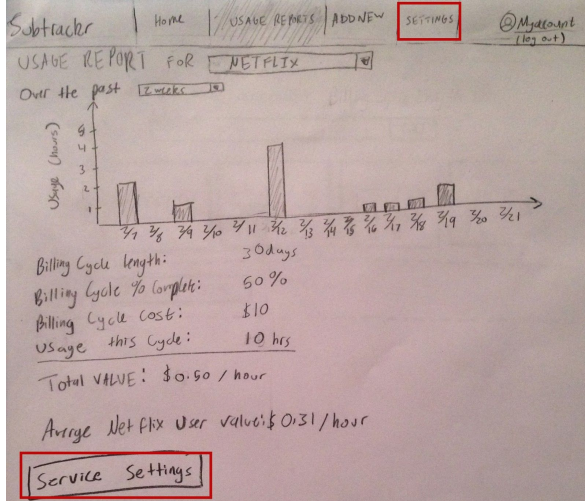 Subtrackr Home USAGE REPORTS ADD NEW SETTINGS My account
(log out)
USAGE REPORT FOR NETFLIX
Over the past 2 weeks
Usage (hours)
5
4
3
2
1
2/7 2/8 2/9 2/10 2/11 2/12 2/13 2/14 2/15 2/16 2/17 2/18 2/19 2/20 2/21
Billing Cycle length: 30 days
Billing Cycle % Complete: 50%
Billing Cycle Cost: $10
Usage this Cycle: 10 hrs
TOTAL VALUE: $0.50 / hour
Averge Netflix User value: $0.31/hour
Service Settings